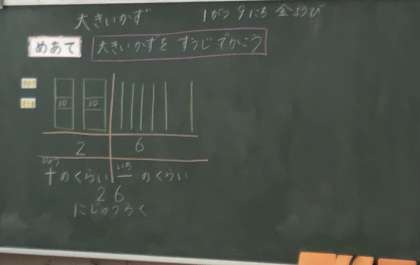 大きいかず 1がつ9にち金ようび
めあて 大きいかずを すうじでかこう
10 10
2 6
じゅう いち
十のくらい 一のくらい
26
にじゅうろく